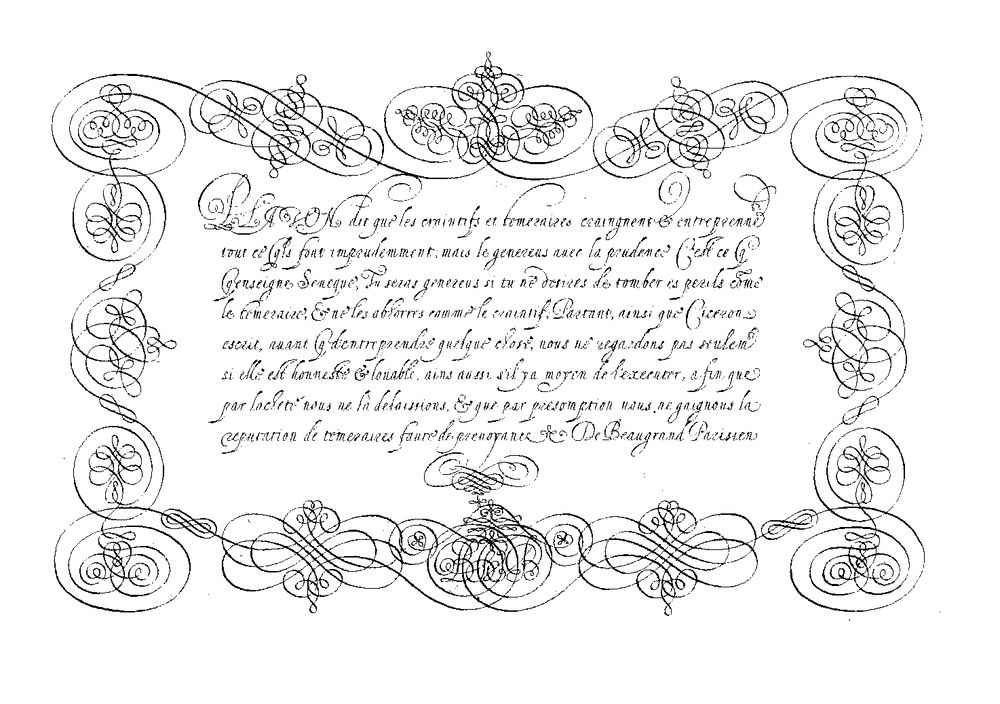 PLATON dit que les craintifs et temeraires craingnent & entreprennẽt
tout ce q̃ls font imprudemment, mais le genereus avec la prudence C'est ce q̃
q̃enseigne Seneque, Tu seras genereus si tu ne desires de tomber es perils cõme
le temeraire, & ne les abhorres comme le craintif, Partant, ainsi que Ciceron
escrit, avant q̃ d'entreprendre quelque chose, nous ne regardons pas seulemt
si elle est honneste & louable, ains aussi s'il y a moyen de l'executer, afin que
par lacheté nous ne la delaissions, & que par presomption nous ne gaignons la
reputation de temeraires faute de prevoyance De Beaugrand Parisien